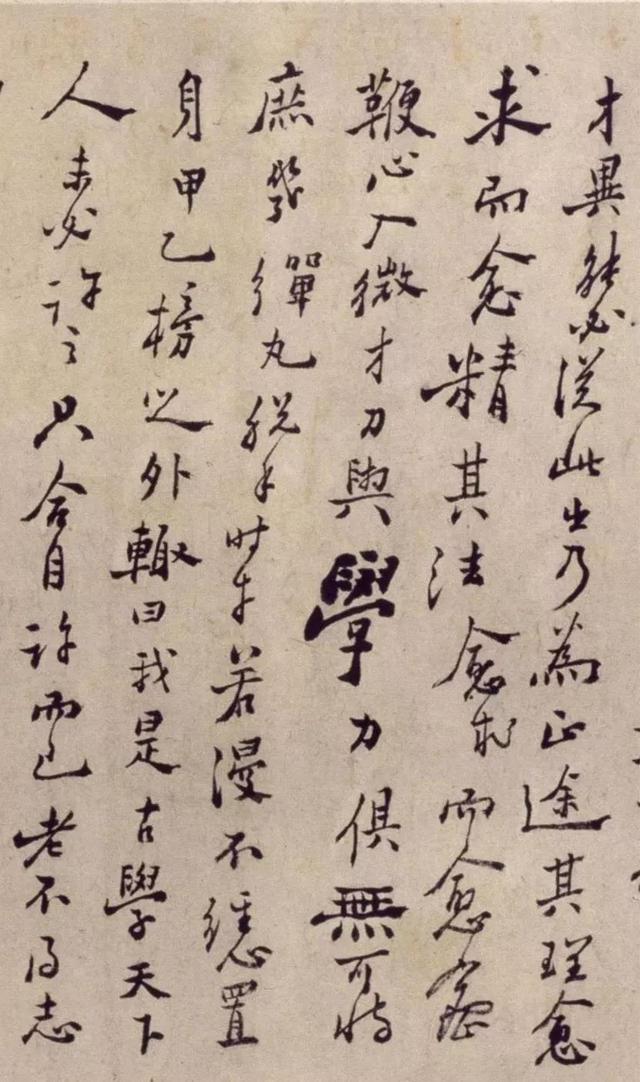 才異能必從此出乃為正途其理愈
求而愈精其法愈而愈密
鞭心入微才力與學力俱無可恃
庶幾彈丸脫手時若漫不總置
身甲乙榜之外輙曰我是古學天下
人未必許之只合自許而已老不得志